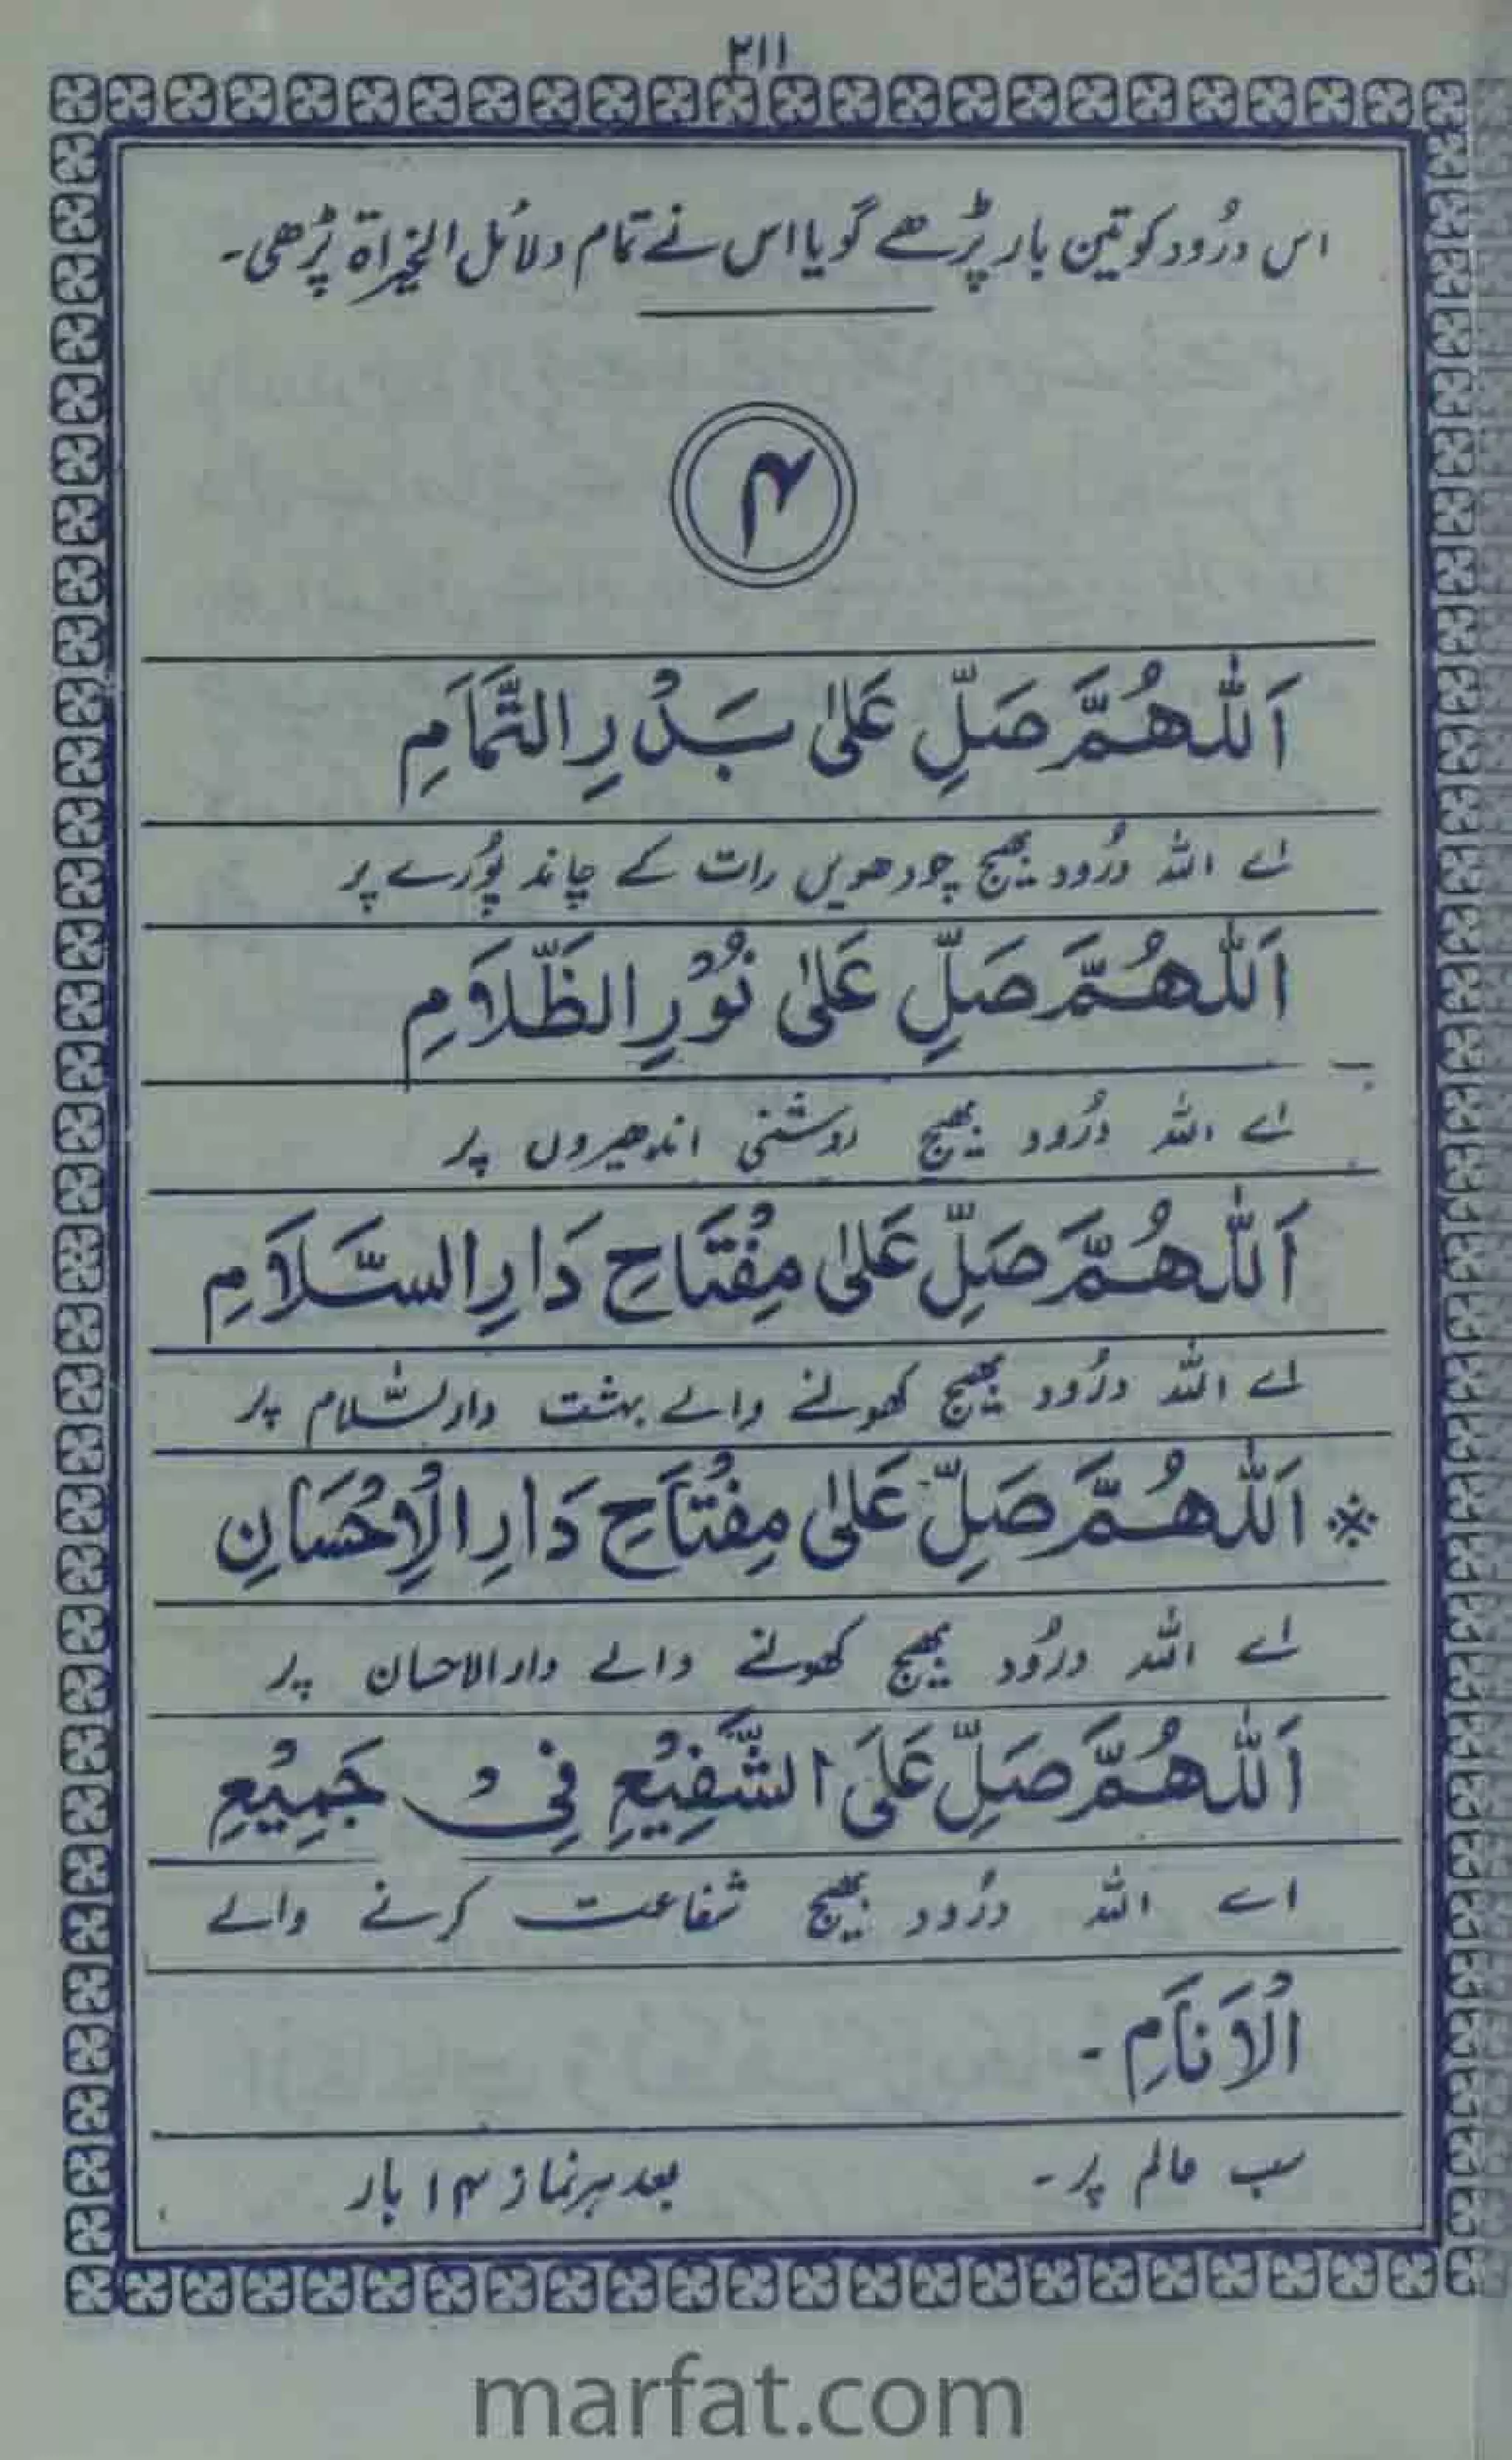 ۲۱۱
اس درُود کو تین بار پڑھے گویا اس نے تمام دلائل الخیراۃ پڑھی۔
۴
اَللّٰهُمَّ صَلِّ عَلٰی بَدْرِ التَّمَامِ
اے اللہ درُود بھیج چودھویں رات کے چاند پُورے پر
اَللّٰهُمَّ صَلِّ عَلٰی نُوْرِ الظَّلَامِ
اے اللہ درُود بھیج روشنی اندھیروں پر
اَللّٰهُمَّ صَلِّ عَلٰی مِفْتَاحِ دَارِ السَّلَامِ
اے اللہ درُود بھیج کھولنے والے بہشت دارلسّلام پر
※ اَللّٰهُمَّ صَلِّ عَلٰی مِفْتَاحِ دَارِ الْاِحْسَانِ
اے اللہ درُود بھیج کھولنے والے دارالاحسان پر
اَللّٰهُمَّ صَلِّ عَلَی الشَّفِیْعِ فِیْ جَمِیْعِ
اے اللہ درُود بھیج شفاعت کرنے والے
الْاَنَامِ ۔
سب عالم پر۔ بعد ہر نماز ۱۴ بار
marfat.com